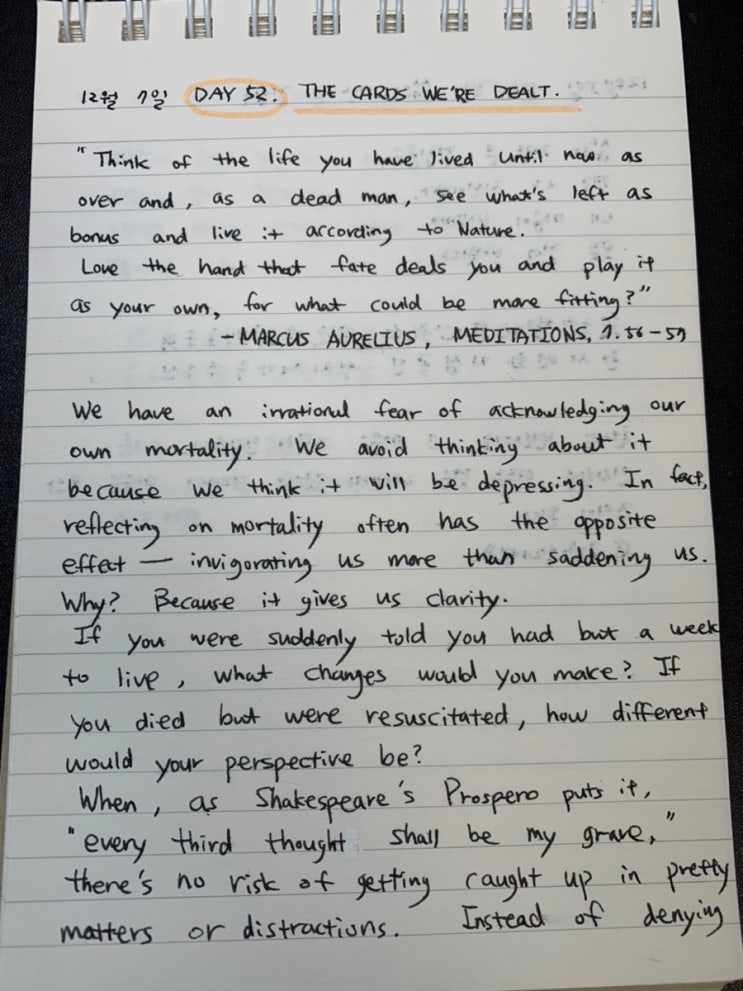 12월 7일 DAY 52. THE CARDS WE'RE DEALT.
"Think of the life you have lived until now as
over and, as a dead man, see what's left as
bonus and live it according to Nature.
Love the hand that fate deals you and play it
as your own, for what could be more fitting?"
- MARCUS AURELIUS, MEDITATIONS, 7.56-59
We have an irrational fear of acknowledging our
own mortality. We avoid thinking about it
because we think it will be depressing. In fact,
reflecting on mortality often has the opposite
effect — invigorating us more than saddening us.
Why? Because it gives us clarity.
If you were suddenly told you had but a week
to live, what changes would you make? If
you died but were resuscitated, how different
would your perspective be?
When, as Shakespeare's Prospero puts it,
"every third thought shall be my grave,"
there's no risk of getting caught up in pretty
matters or distractions. Instead of denying